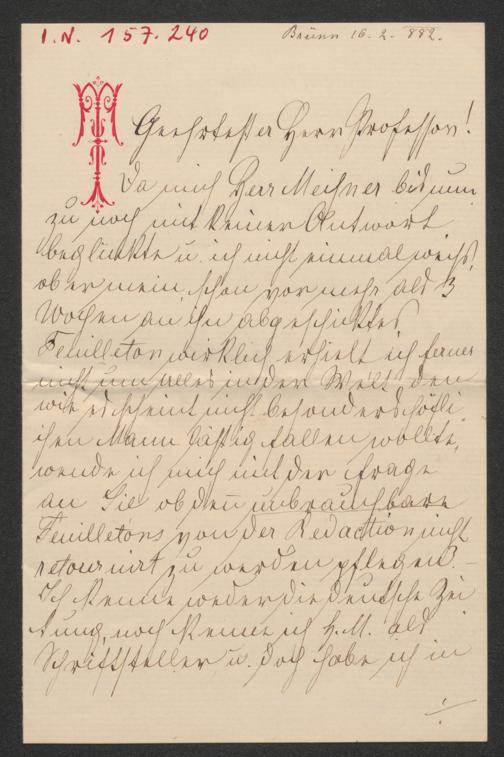 I.N. 157.240
Brünn 16.2.882.
M
Geehrtester Herr Professor!
Da mich Herr Meißner bis nun
zu noch mit keiner Antwort
beglückte u. ich nicht einmal weiß,
ob er mein, schon vor mehr als 3
Wochen an ihn abgeschicktes
Feuilleton wirklich erhielt ich ferner
nicht um alles in der Welt den
wie es scheint nicht besonders höfli
chen Mann lästig fallen wollte,
wende ich mich mit der Frage
an Sie ob den unbrauchbare
Feuilletons von der Redaction nicht
retournirt zu werden pflegen? –
Ich kenne weder die deutsche Zei
tung, noch kenne ich H. M. als
Schriftsteller u. doch habe ich in
./.